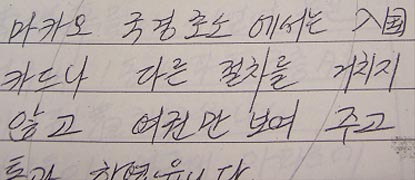 마카오 국경초소에서는 入国
카드나 다른 절차를 거치지
않고 여권만 보여 주고
통과 하였습니다